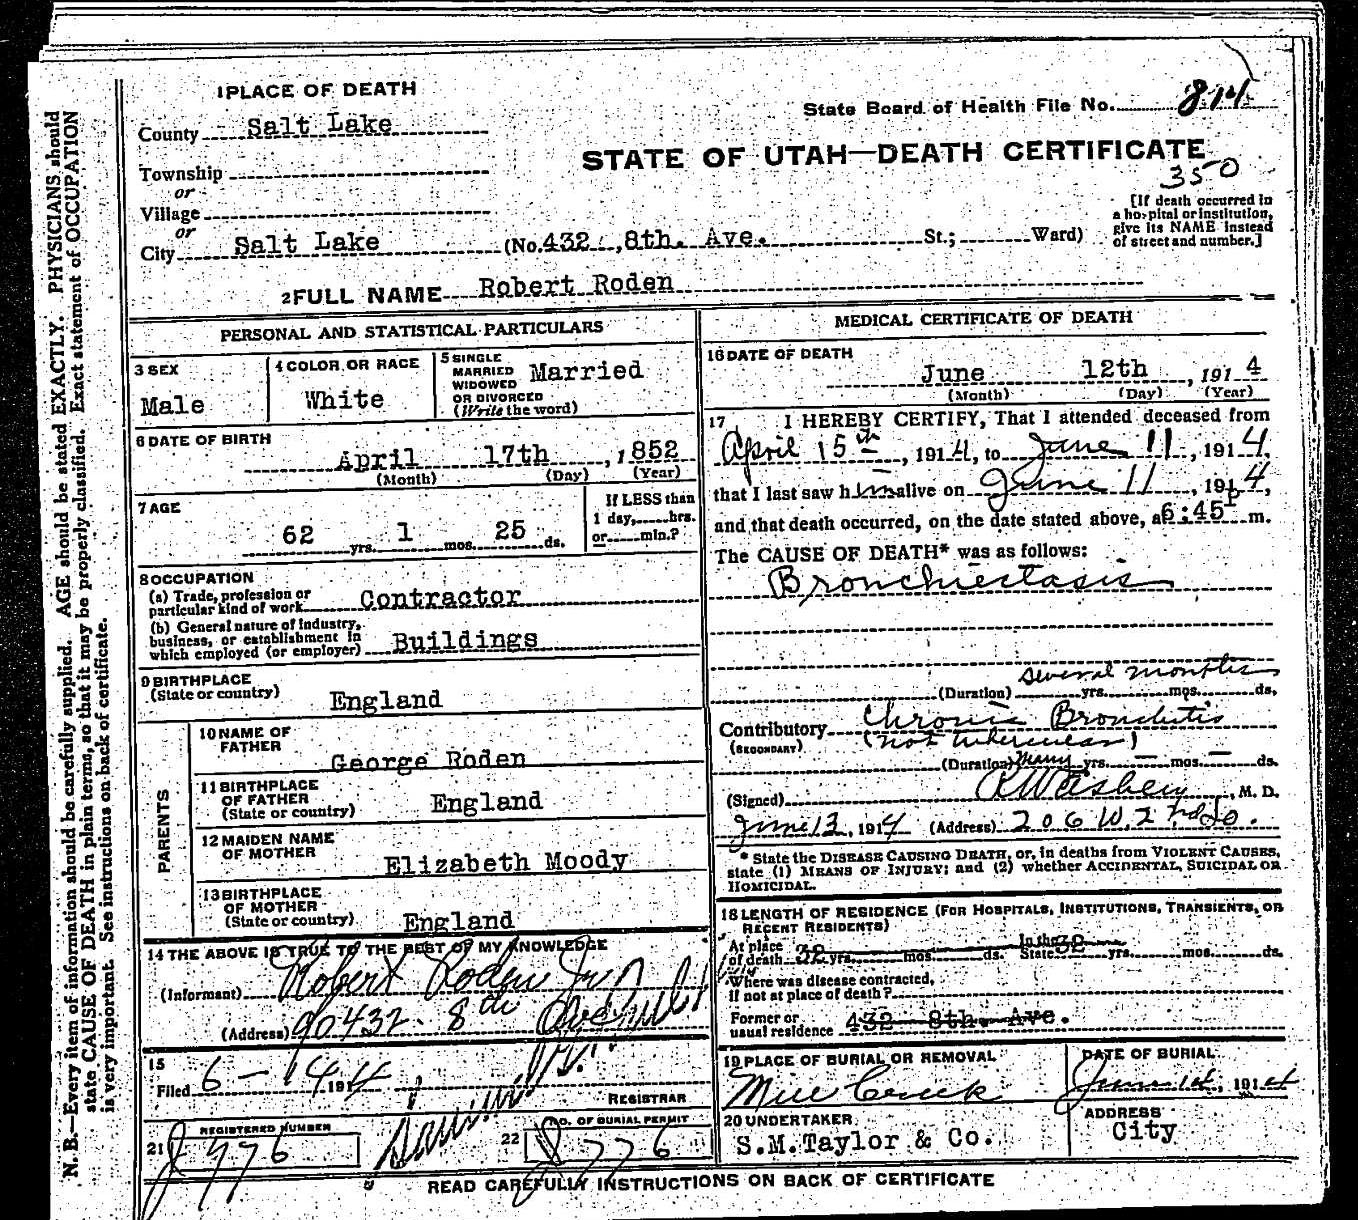 1 PLACE OF DEATH
State Board of Health File No. 814
County Salt Lake
STATE OF UTAH—DEATH CERTIFICATE
350
Township
or
Village
or
City Salt Lake (No. 432 , 8th. Ave. St.; Ward)
[If death occurred in
a hospital or institution,
give its NAME instead
of street and number.]
2 FULL NAME Robert Roden
PERSONAL AND STATISTICAL PARTICULARS
3 SEX
Male
4 COLOR OR RACE
White
5 SINGLE
MARRIED
WIDOWED
OR DIVORCED
(Write the word)
Married
6 DATE OF BIRTH
April 17th , 1852
(Month) (Day) (Year)
7 AGE
62 yrs. 1 mos. 25 ds.
If LESS than
1 day,......hrs.
or......min.?
8 OCCUPATION
(a) Trade, profession or
particular kind of work Contractor
(b) General nature of industry,
business, or establishment in
which employed (or employer) Buildings
9 BIRTHPLACE
(State or country)
England
PARENTS
10 NAME OF
FATHER
George Roden
11 BIRTHPLACE
OF FATHER
(State or country)
England
12 MAIDEN NAME
OF MOTHER
Elizabeth Moody
13 BIRTHPLACE
OF MOTHER
(State or country)
England
14 THE ABOVE IS TRUE TO THE BEST OF MY KNOWLEDGE
(Informant) Robert Roden Jr
(Address) 432 - 8th Ave
15
Filed 6 - 14 1914
REGISTRAR
21 REGISTERED NUMBER
J 776
22 NO. OF BURIAL PERMIT
776
MEDICAL CERTIFICATE OF DEATH
16 DATE OF DEATH
June 12th , 1914
(Month) (Day) (Year)
17 I HEREBY CERTIFY, That I attended deceased from
April 15th , 1914, to June 11, 1914,
that I last saw him alive on June 11, 1914,
and that death occurred, on the date stated above, at 6:45 P m.
The CAUSE OF DEATH* was as follows:
Bronchiectasis
several months
(Duration) yrs. mos. ds.
Contributory Chronic Bronchitis
(SECONDARY) (not tubercular)
(Duration) many yrs. — mos. — ds.
(Signed) , M. D.
June 13, 1914 (Address) 206 W. 2nd So.
* State the DISEASE CAUSING DEATH, or, in deaths from VIOLENT CAUSES,
state (1) MEANS OF INJURY; and (2) whether ACCIDENTAL, SUICIDAL OR
HOMICIDAL.
18 LENGTH OF RESIDENCE (FOR HOSPITALS, INSTITUTIONS, TRANSIENTS, OR
RECENT RESIDENTS)
At place
of death 32 yrs. mos. ds. In the
State 32 yrs. mos. ds.
Where was disease contracted,
if not at place of death?
Former or
usual residence 432 8th. Ave.
19 PLACE OF BURIAL OR REMOVAL
Mill Creek
DATE OF BURIAL
June 14, 1914
20 UNDERTAKER
S.M. Taylor & Co.
ADDRESS
City
READ CAREFULLY INSTRUCTIONS ON BACK OF CERTIFICATE
N. B.—Every item of information should be carefully supplied. AGE should be stated EXACTLY. PHYSICIANS should
state CAUSE OF DEATH in plain terms, so that it may be properly classified. Exact statement of OCCUPATION
is very important. See instructions on back of certificate.